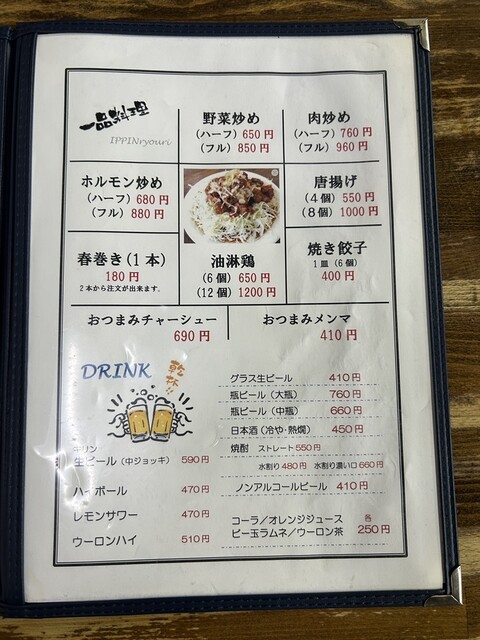 一品料理
IPPINryouri
野菜炒め
(ハーフ) 650円
(フル) 850円
肉炒め
(ハーフ) 760円
(フル) 960円
ホルモン炒め
(ハーフ) 680円
(フル) 880円
唐揚げ
(4個) 550円
(8個) 1000円
春巻き(1本)
180円
2本から注文が出来ます。
油淋鶏
(6個) 650円
(12個) 1200円
焼き餃子
1皿 (6個)
400円
おつまみチャーシュー
690円
おつまみメンマ
410円
DRINK
乾杯!!
キリン
生ビール (中ジョッキ) 590円
ハイボール 470円
レモンサワー 470円
ウーロンハイ 510円
グラス生ビール 410円
瓶ビール (大瓶) 760円
瓶ビール (中瓶) 660円
日本酒 (冷や・熱燗) 450円
焼酎 ストレート 550円
水割り 480円 水割り濃い口 660円
ノンアルコールビール 410円
コーラ/オレンジジュース
ビー玉ラムネ/ウーロン茶
各
250円